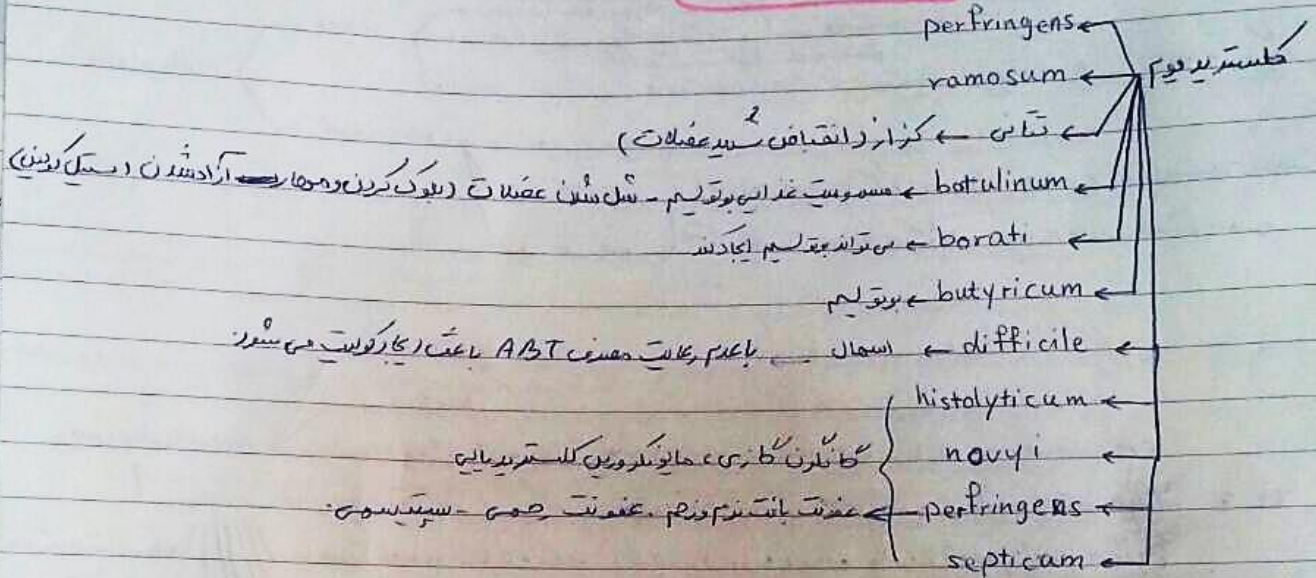 کلستریدیوم
perfringens
ramosum
تتانی ← کزاز (انقباض شدید عضلات)
botulinum ← مسمومیت غذایی بوتولیسم - شل شدن عضلات (بلوک کردن و مهار آزاد شدن استیل کولین)
borati ← می تواند بوتولیسم ایجاد کند
butyricum ← بوتولیسم
difficile ← اسهال ← با عدم رعایت مصرف ABT باعث ایجاد کولیت می شود.
histolyticum
novyi گانگرن گازی، مایونکروزیس کلستریدیایی
perfringens ← عفونت بافت نرم و زخم. عفونت رحمی - سپتیسمی.
septicam